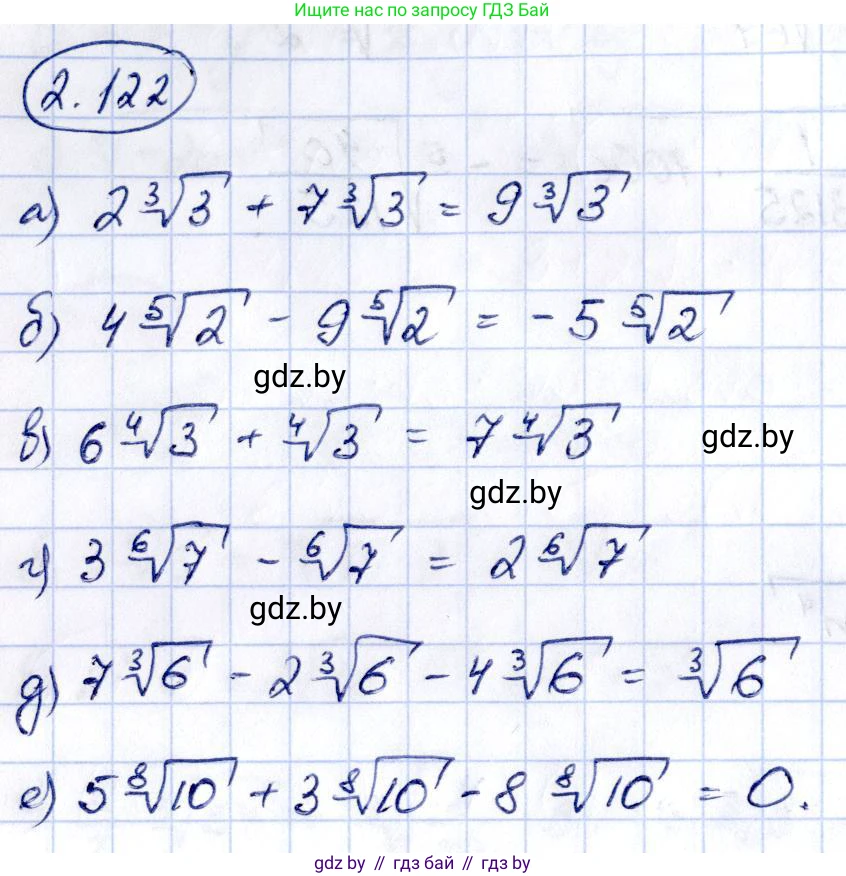 Ищите нас по запросу ГДЗ Бай
2.122
а) 2∛3 + 7∛3 = 9∛3
б) 4⁵√2 - 9⁵√2 = -5⁵√2
gdz.by
в) 6⁴√3 + ⁴√3 = 7⁴√3
gdz.by
gdz.by
г) 3⁶√7 - ⁶√7 = 2⁶√7
gdz.by
д) 7∛6 - 2∛6 - 4∛6 = ∛6
е) 5⁸√10 + 3⁸√10 - 8⁸√10 = 0.
gdz.by // гдз бай // гдз by